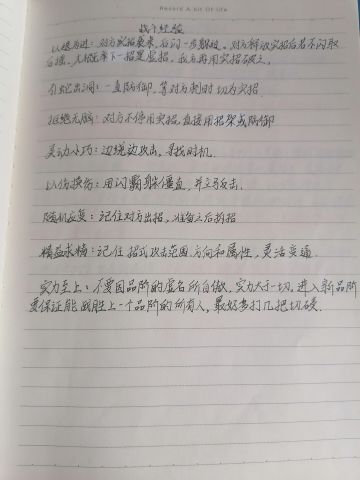 Record A bit Of Life
战斗经验
以退为进：对方实招袭来，后闪一步躲避。对方释放实招后若不闪取
后摇，大概率下一招是虚招，我方再用实招破之。
引蛇出洞：一直防御，等对方刺时切为实招。
拒绝无脑：对方不停用实招，直接用招架或防御
灵动小巧：边绕边攻击，寻找时机。
以伤换伤：用闪霸躲僵直，并立马反击。
随机应变：记住对方出招，准备之后拆招
精益求精：记住招式攻击范围、方向和属性，灵活变通
实力至上：不要因品阶的虚名所自傲，实力大于一切，进入新品阶
要保证能战胜上一个品阶的所有人，最好多打几把切磋.